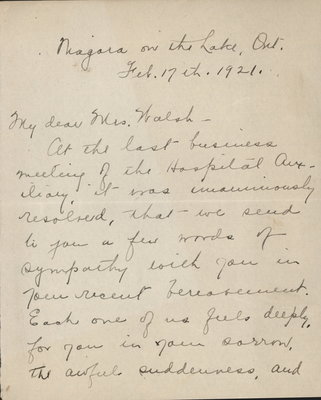 Niagara on the Lake, Ont.
Feb. 17th. 1921.
My dear Mrs. Walsh -
At the last business
meeting of the Hospital Aux-
iliary, it was unanimously
resolved, that we send
to you a few words of
sympathy with you in
your recent bereavement.
Each one of us feels deeply,
for you in your sorrow,
the awful suddenness, and